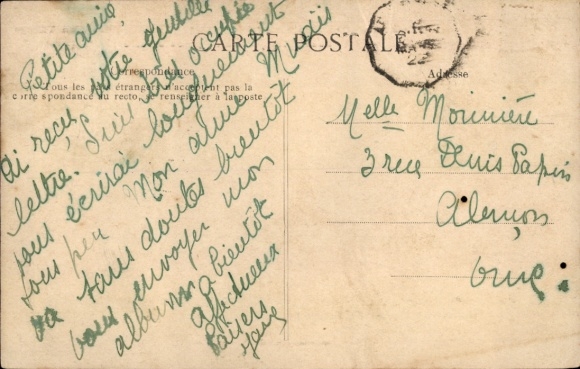 CARTE POSTALE
Correspondance
Tous les pays étrangers n'acceptent pas la
correspondance au recto, se renseigner à la poste
Adresse
Petite amie,
ai reçu votre gentille
lettre. Suis très occupée
vous écrirai longuement
sous peu. Mon amie
va sans doutes bientôt
vous envoyer mon
album. A bientôt
Affectueux
baisers
Melle Morinière
3 rue Denis Papin
Alençon
Orne.